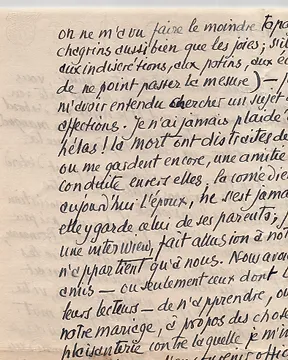 on ne m'a vu faire le moindre tapa
chagrins aussi bien que les joies; s'il
aux indiscrétions, aux potins, aux é
de ne point passer la mesure) — j
m'avoir entendu chercher un sujet d
affections. Je n'ai jamais plaidé
hélas! la mort ont distraites de
ou me gardent encore, une amitié
conduite envers elles. La comédie
aujourd'hui l'épouse, ne s'est jama
elle y garde celui de ses parents; j
une interview, fait allusion à not
n'appartient qu'à nous. Nous avo
amis — ou seulement ceux dont l
leurs lecteurs — de n'apprendre, ou
notre mariage, à propos des chose
plaisanterie contre laquelle je m'in